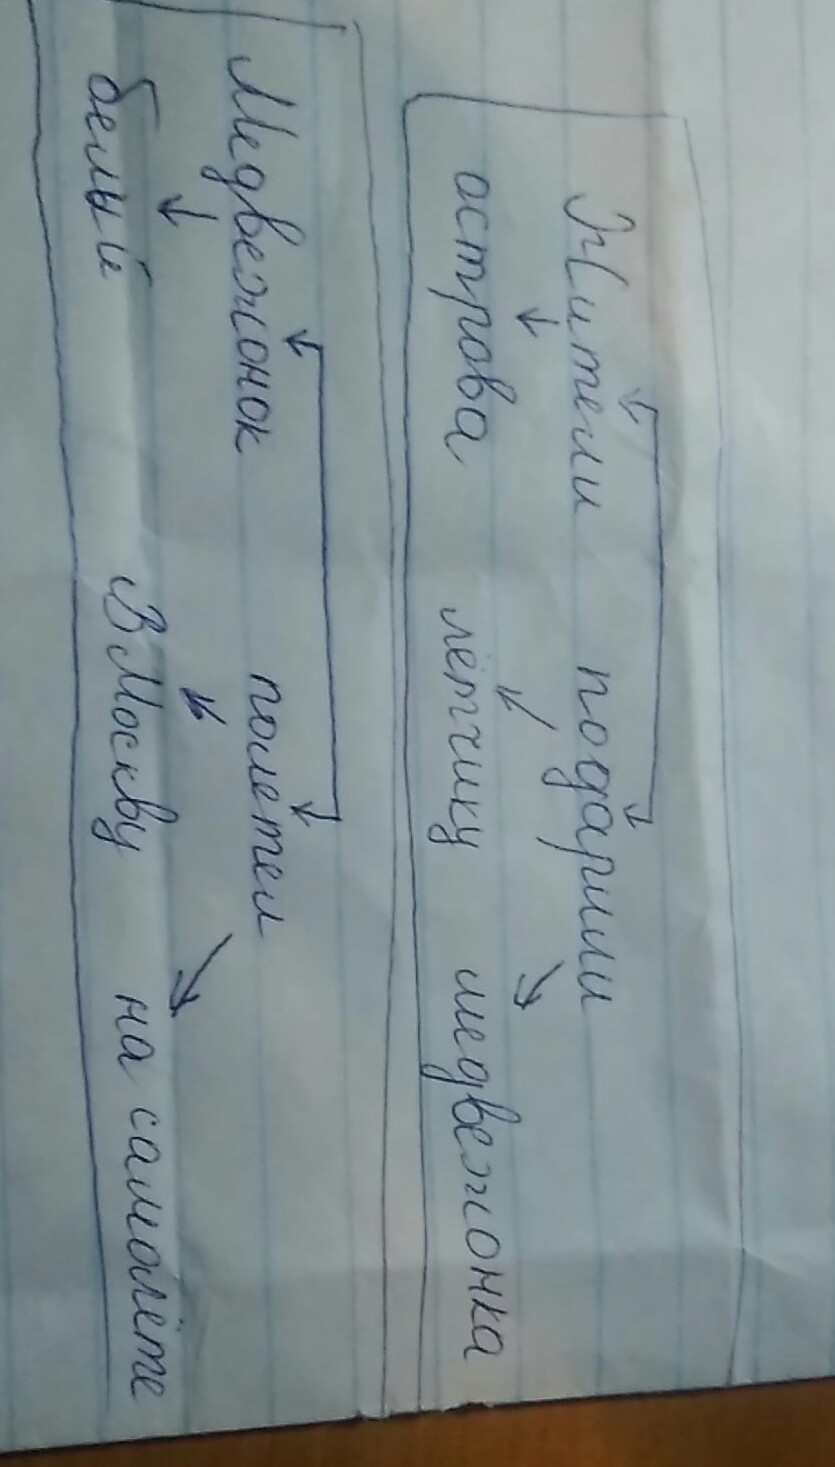 Жители подарили
острова лётчику медвежонка
Медвежонок полетел
белый в Москву на самолёте